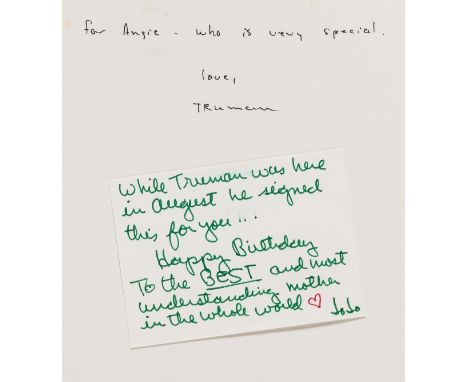 for Angie - who is very special.
love,
Truman
While Trueman was here
in august he signed
this for you!!!
Happy Birthday
To the BEST and most
understanding mother
in the whole world ♡ JoJo